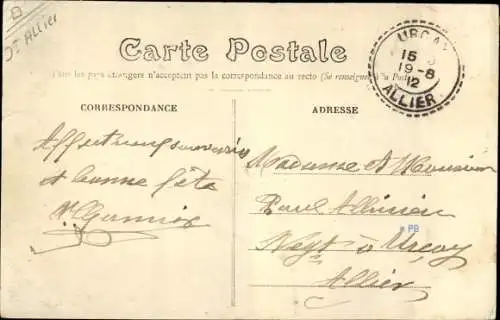 Dt Allier
Carte Postale
Tous les pays étrangers n'acceptent pas la correspondance au recto (Se renseigner à la Poste)
URÇAY
15
19-8
12
ALLIER
CORRESPONDANCE
ADRESSE
Affectueux souvenirs
et bonne fête
Madame et Monsieur
Paul
à Urçay
PB
Allier